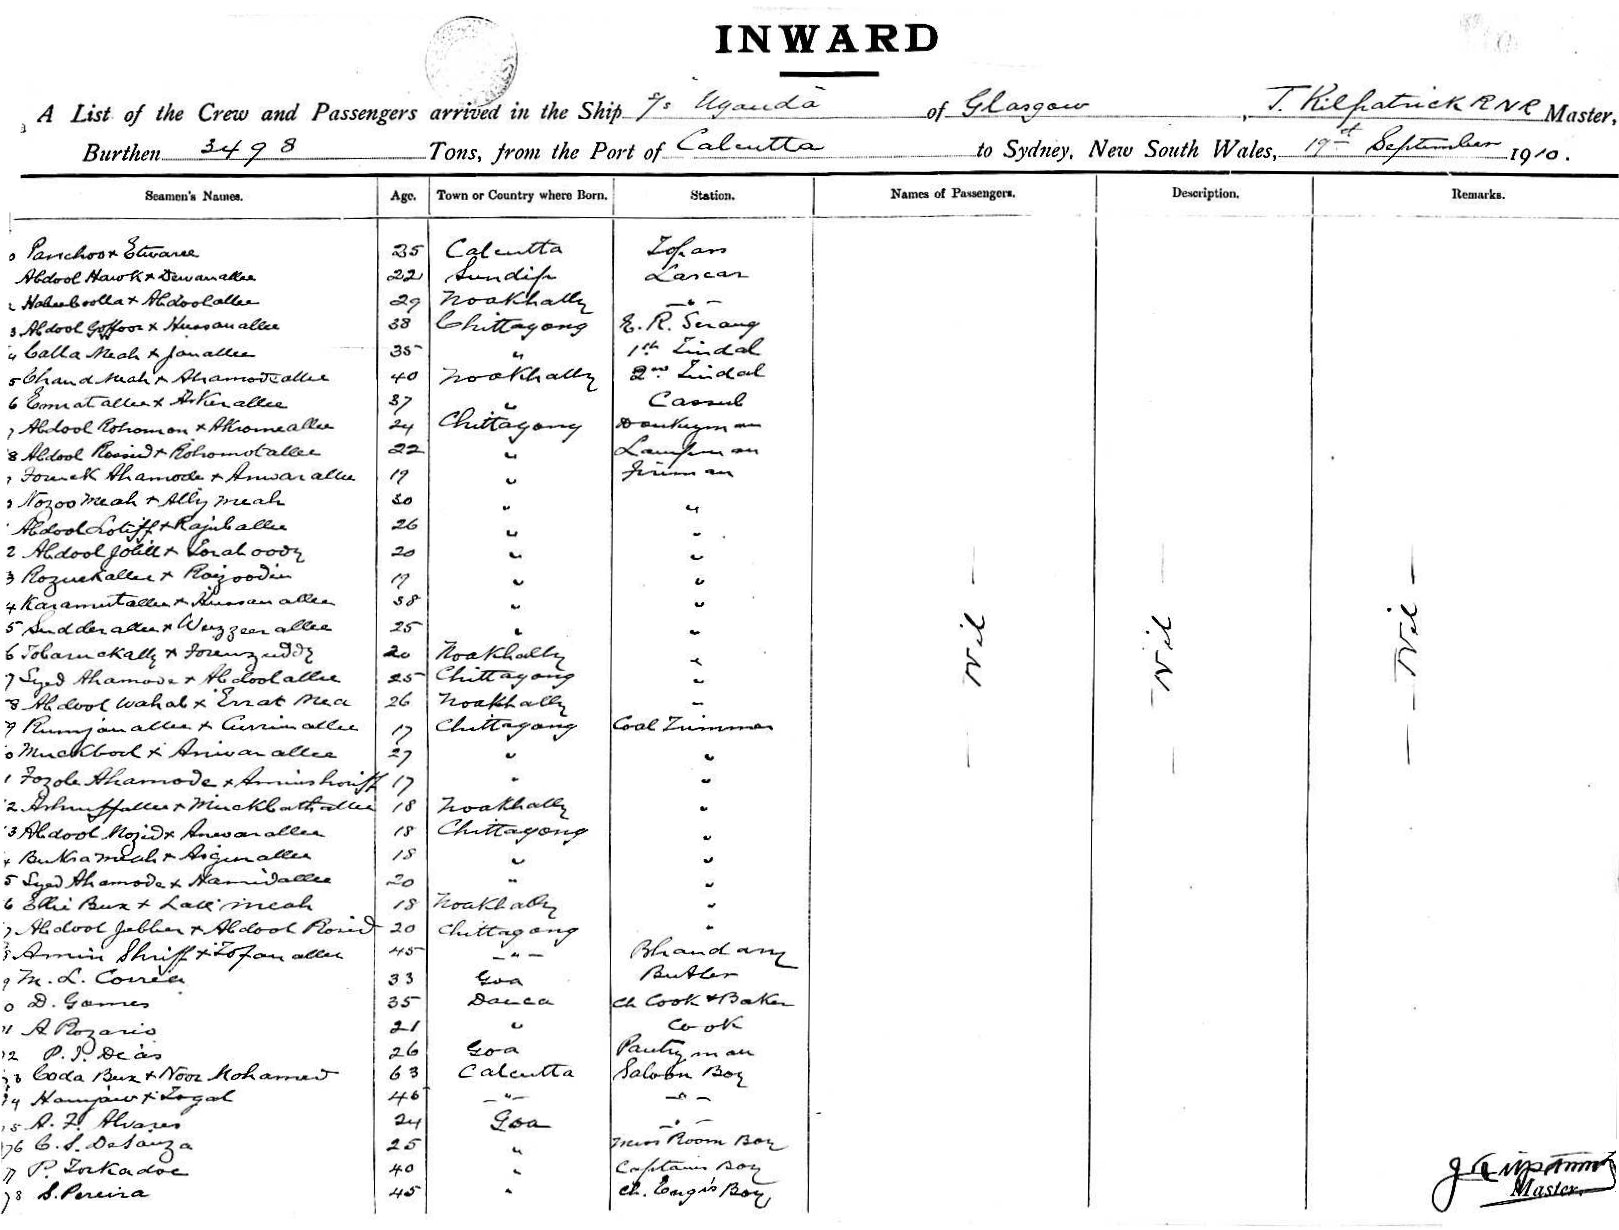 INWARD
A List of the Crew and Passengers arrived in the Ship s/s Uganda of Glasgow, T. Kilpatrick RNR Master,
Burthen 3498 Tons, from the Port of Calcutta to Sydney, New South Wales, 19th September 1910.
Seamen's Names. Age. Town or Country where Born. Station. Names of Passengers. Description. Remarks.
0 Panchoo x Etwaree 35 Calcutta Topas
Abdool Hawk x Dewanallee 22 Sundip Lascar
2 Habeeboolla x Abdoolallee 29 Noakhally - " -
3 Abdool Goffoor x Hussanallee 38 Chittagong E. R. Serang
4 Calla Meah x Janallee 35 " 1st Tindal
5 Chand Meah x Ahamodeallee 40 Noakhally 2nd Tindal
6 Emratallee x Askerallee 37 " Cassub
7 Abdool Rohomon x Akromeallee 24 Chittagong Donkeyman
8 Abdool Rosid x Rohomotallee 22 " Lampman
Ahamode x Anwarallee 19 " Fireman
Nozoo Meah x Ally Meah 30 " "
Abdool Lotiff x Rajuballee 26 " "
2 Abdool Jolill x 20 " "
3 Rozuckallee x 19 " "
4 Karamutallee x Hussanallee 38 " "
5 Sudderallee x Wuzzeerallee 25 " "
6 Tobaruckally x 20 Noakhally "
7 Syed Ahamode x Abdoolallee 25 Chittagong "
8 Abdool Wahab x Errat Mea 26 Noakhally "
9 Rumjanallee x 17 Chittagong Coal Trimmer
0 x Anwarallee 27 " "
1 Fozole Ahamode x Aminshoriff 17 " "
2 Ashruffallee x 18 Noakhally "
3 Abdool Mozid x Anwarallee 18 Chittagong "
4 Buksa Meah x 18 " "
5 Syed Ahamode x Hamidallee 20 " "
6 Ellie Bux x Lall Meah 18 Noakhally "
7 Abdool Jebber x Abdool Rosid 20 Chittagong "
8 Amin Shriff x Tofanallee 45 - " - Bhandary
9 M. L. Correa 33 Goa Butler
0 D. Gomes 35 Dacca Ch Cook & Baker
1 A Rozario 21 " Cook
2 P. J. Dias 26 Goa Pantryman
3 Coda Bux x Noor Mohamed 63 Calcutta Saloon Boy
4 x 46 - " - - " -
5 A. F. Alvares 24 Goa - " -
76 C. S. DeSouza 25 " Mess Room Boy
7 P. 40 " Captains Boy
78 S. Pereira 45 " Ch. Engrs Boy
- Nil - - Nil - - Nil -
Master.